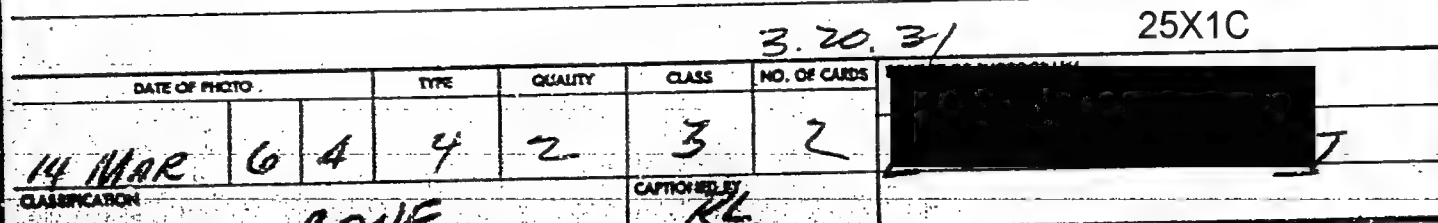 3.20.31 25X1C
DATE OF PHOTO . TYPE QUALITY CLASS NO. OF CARDS
14 MAR 6 4 4 2 3 2
CLASSIFICATION CAPTIONED BY
RL